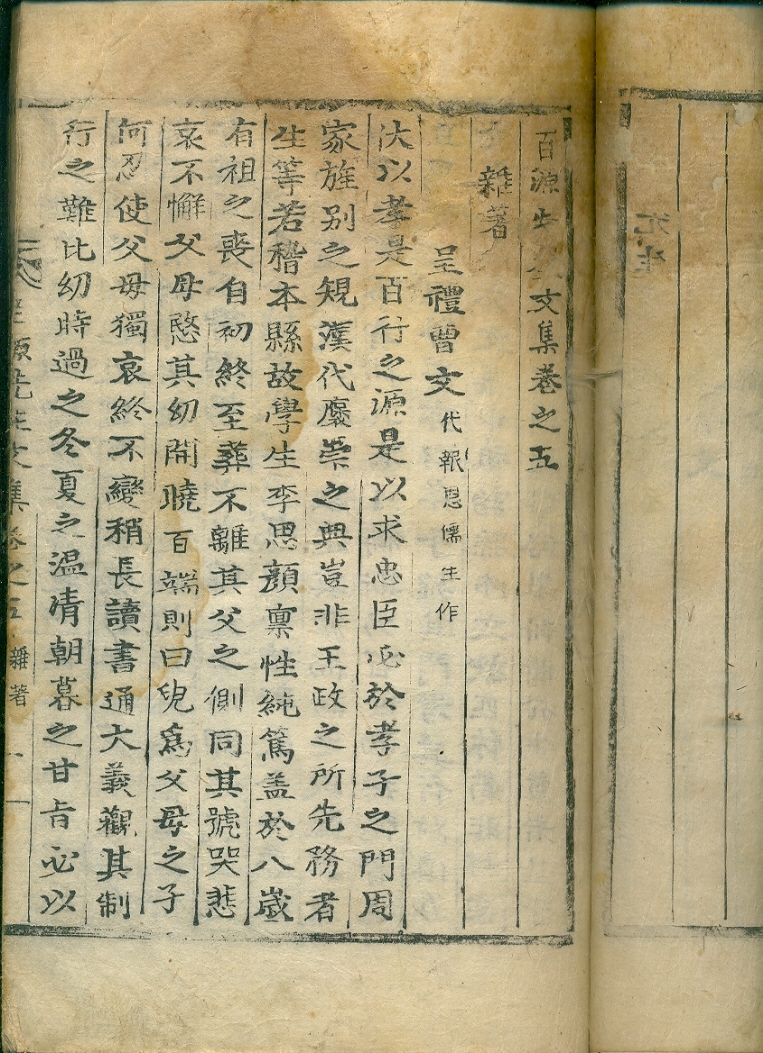 百源先生文集卷之五
雜著
呈禮曹文 代報恩儒生作
伏以孝是百行之源是以求忠臣必於孝子之門周
家旌別之規漢代褒崇之典豈非王政之所先務者
生等若稽本縣故學生李思顔禀性純篤盖於八歲
有祖之喪自初終至葬不離其父之側同其號哭悲
哀不懈父母愍其幼開曉百端則曰兒爲父母之子
何忍使父母獨哀終不變稍長讀書通大義觀其制
行之難比幼時過之冬夏之温凊朝暮之甘旨必以
百源先生文集卷之五 雜著 一
先生